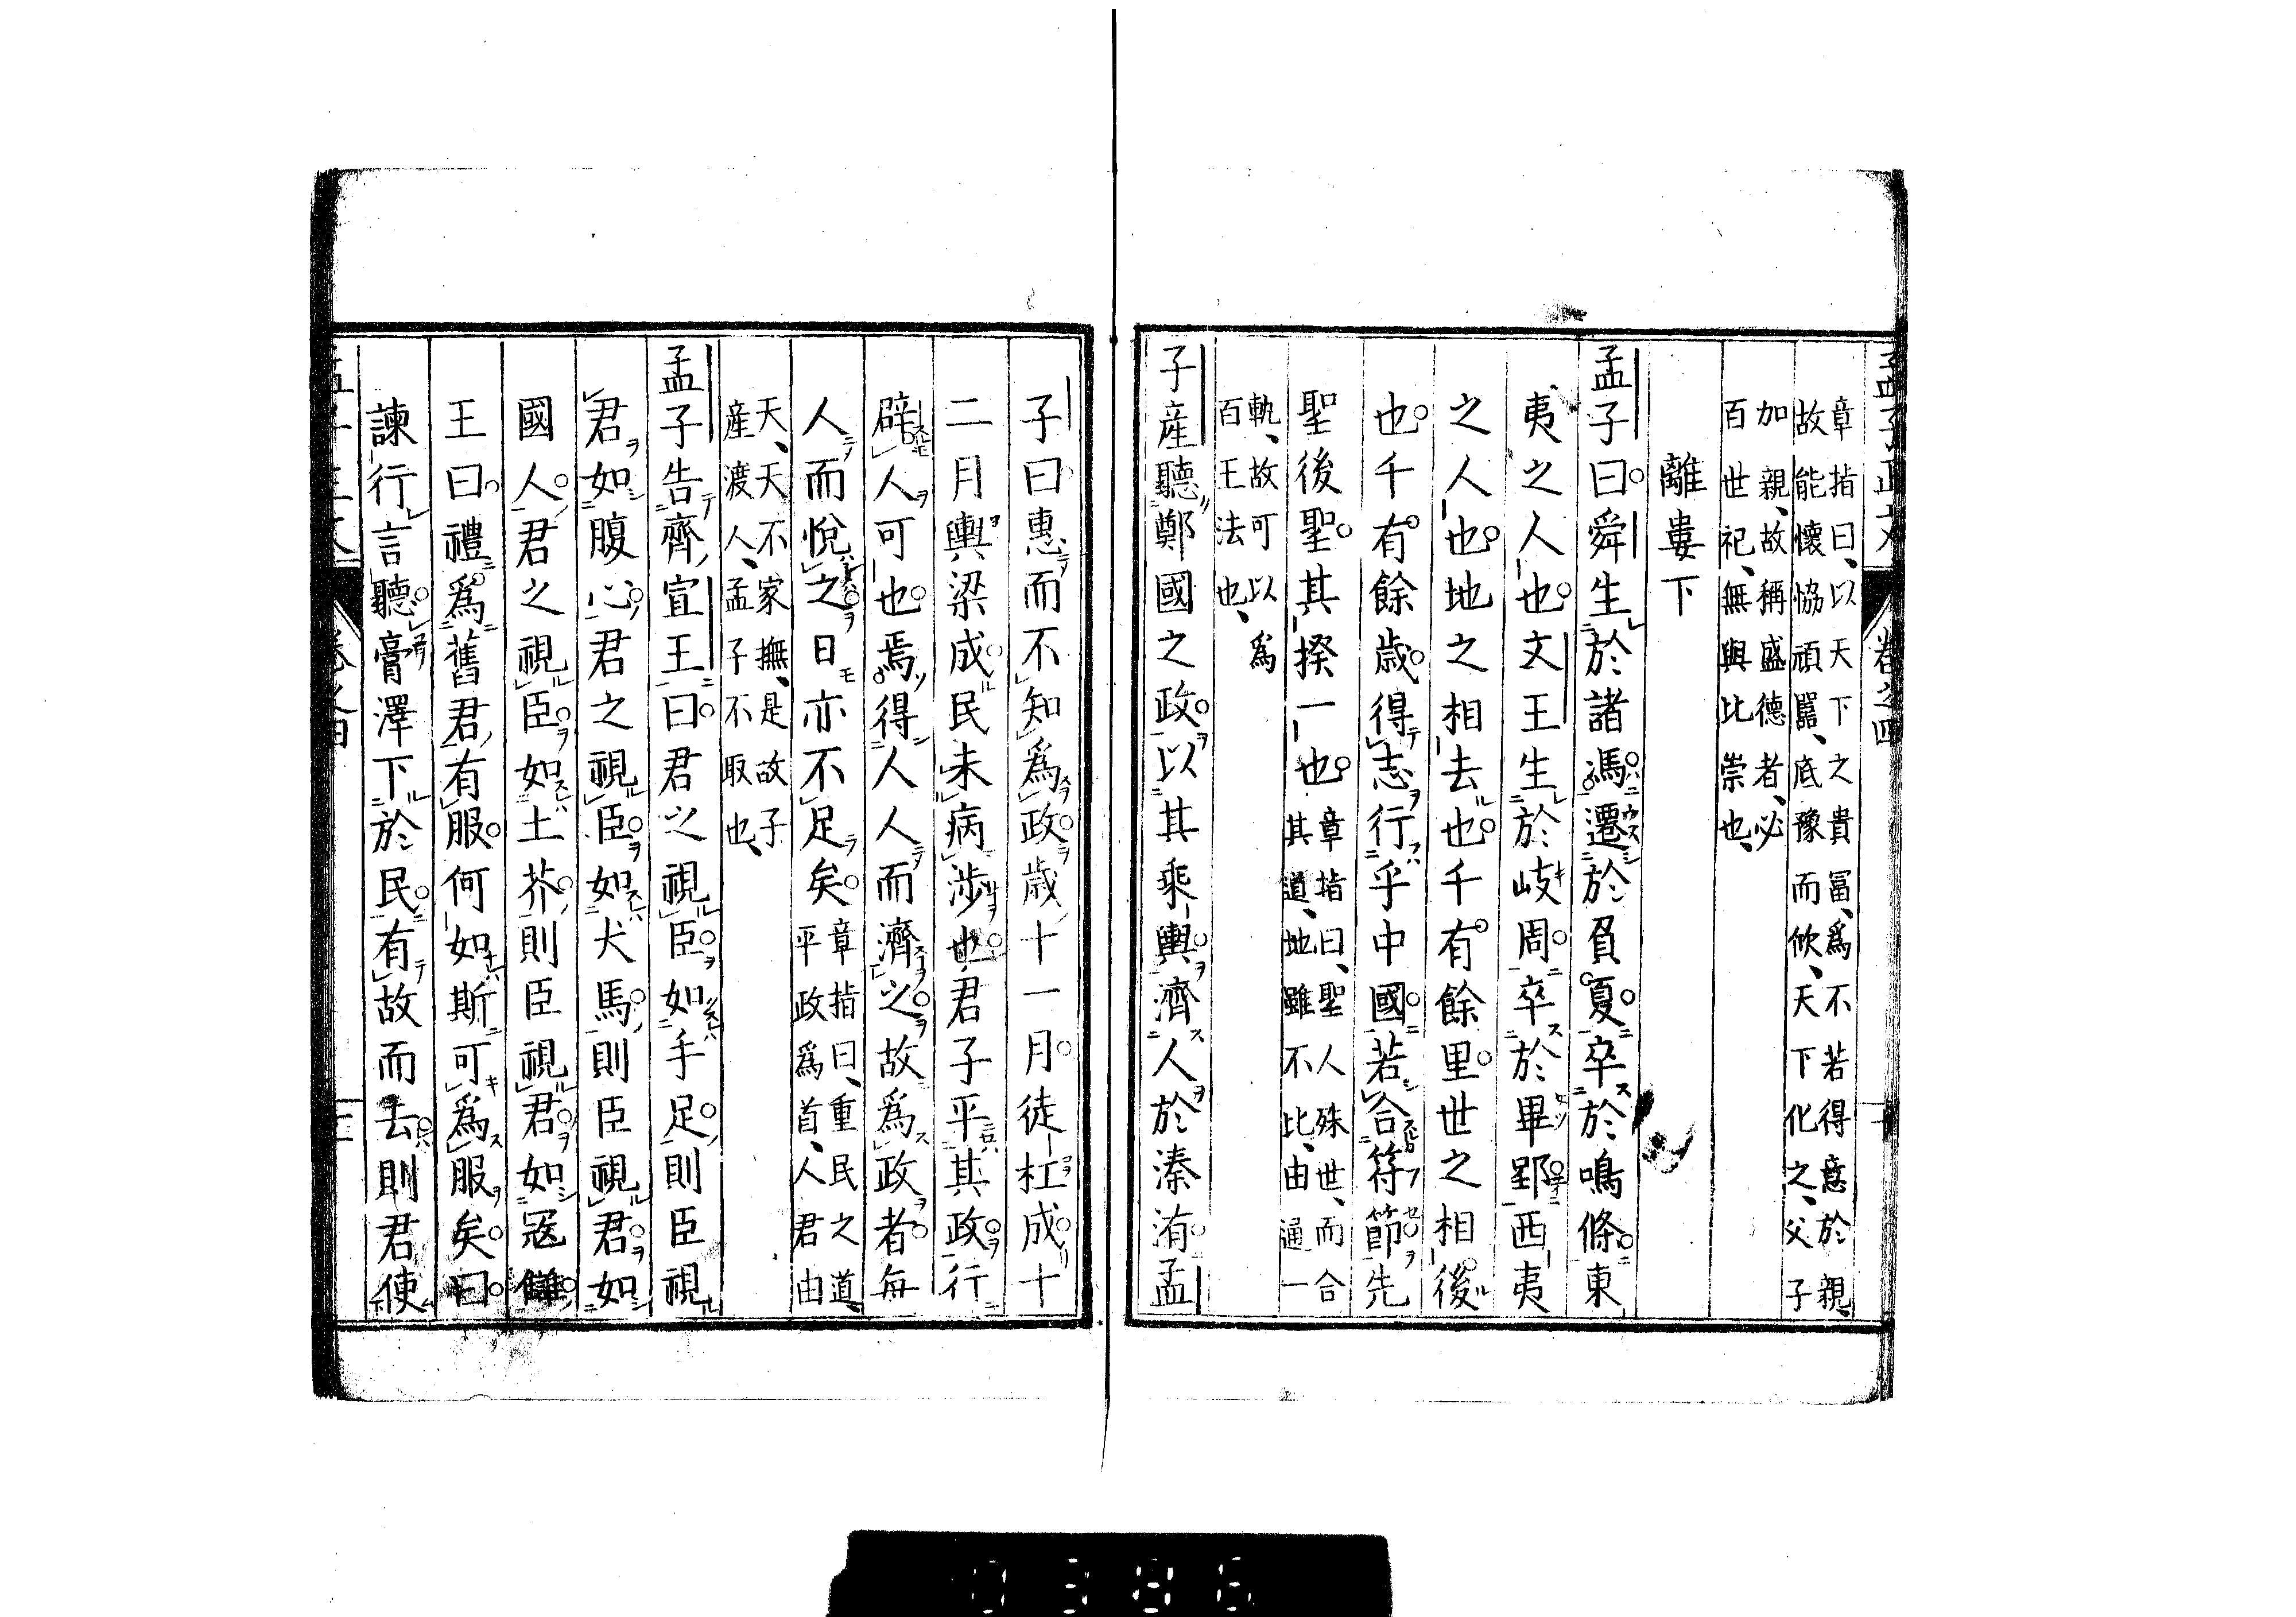 孟子正文 卷之四
章指曰、以天下之貴富、爲不若得意於親、
故能懷恊頑嚚、底豫而欣、天下化之、父子
加親、故稱盛德者、必
百世祀、無與比崇也、
離婁下
孟子曰舜生於諸馮遷於負夏卒於鳴條東
夷之人也文王生於岐周卒於畢郢西夷
之人也地之相去也千有餘里世之相後
也千有餘歲得志行乎中國若合符節先
聖後聖其揆一也
章指曰、聖人殊世、而合
其道、地雖不比、由通一
軌、故可以爲
百王法也、
子産聽鄭國之政以其乘輿濟人於溱洧孟
子曰惠而不知爲政歲十一月徒杠成十
二月輿梁成民未病涉也君子平其政行
辟人可也焉得人人而濟之故爲政者每
人而悅之日亦不足矣
章指曰、重民之道、
平政爲首、人君由
天、天不家撫、是故子
産渡人、孟子不取也、
孟子告齊宣王曰君之視臣如手足則臣視
君如腹心君之視臣如犬馬則臣視君如
國人君之視臣如土芥則臣視君如寇讎
王曰禮爲舊君有服何如斯可爲服矣曰
諫行言聽膏澤下於民有故而去則君使